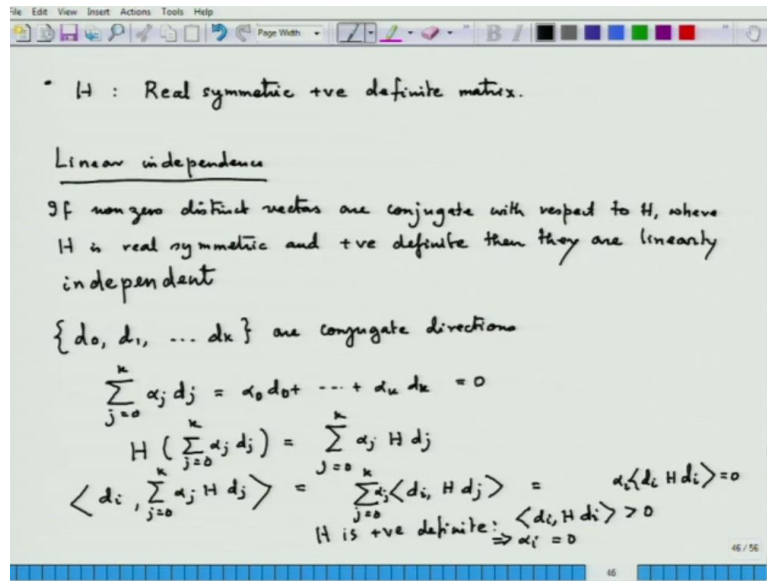 File Edit View Insert Actions Tools Help
Page Width
B I
• H : Real symmetric +ve definite matrix.
Linear independence
If non zero distinct vectors are conjugate with respect to H, where
H is real symmetric and +ve definite then they are linearly
independent
{d₀, d₁, ... dₖ} are conjugate directions
∑_{j=0}^{k} αⱼ dⱼ = α₀ d₀ + ··· + αₖ dₖ = 0
H ( ∑_{j=0}^{k} αⱼ dⱼ ) = ∑_{j=0}^{k} αⱼ H dⱼ
⟨ dᵢ , ∑_{j=0}^{k} αⱼ H dⱼ ⟩ = ∑_{j=0}^{k} αⱼ ⟨dᵢ, H dⱼ⟩ = αᵢ⟨dᵢ H dᵢ⟩ = 0
H is +ve definite: ⟨dᵢ, H dᵢ⟩ > 0
⇒ αᵢ = 0
46 / 56
46